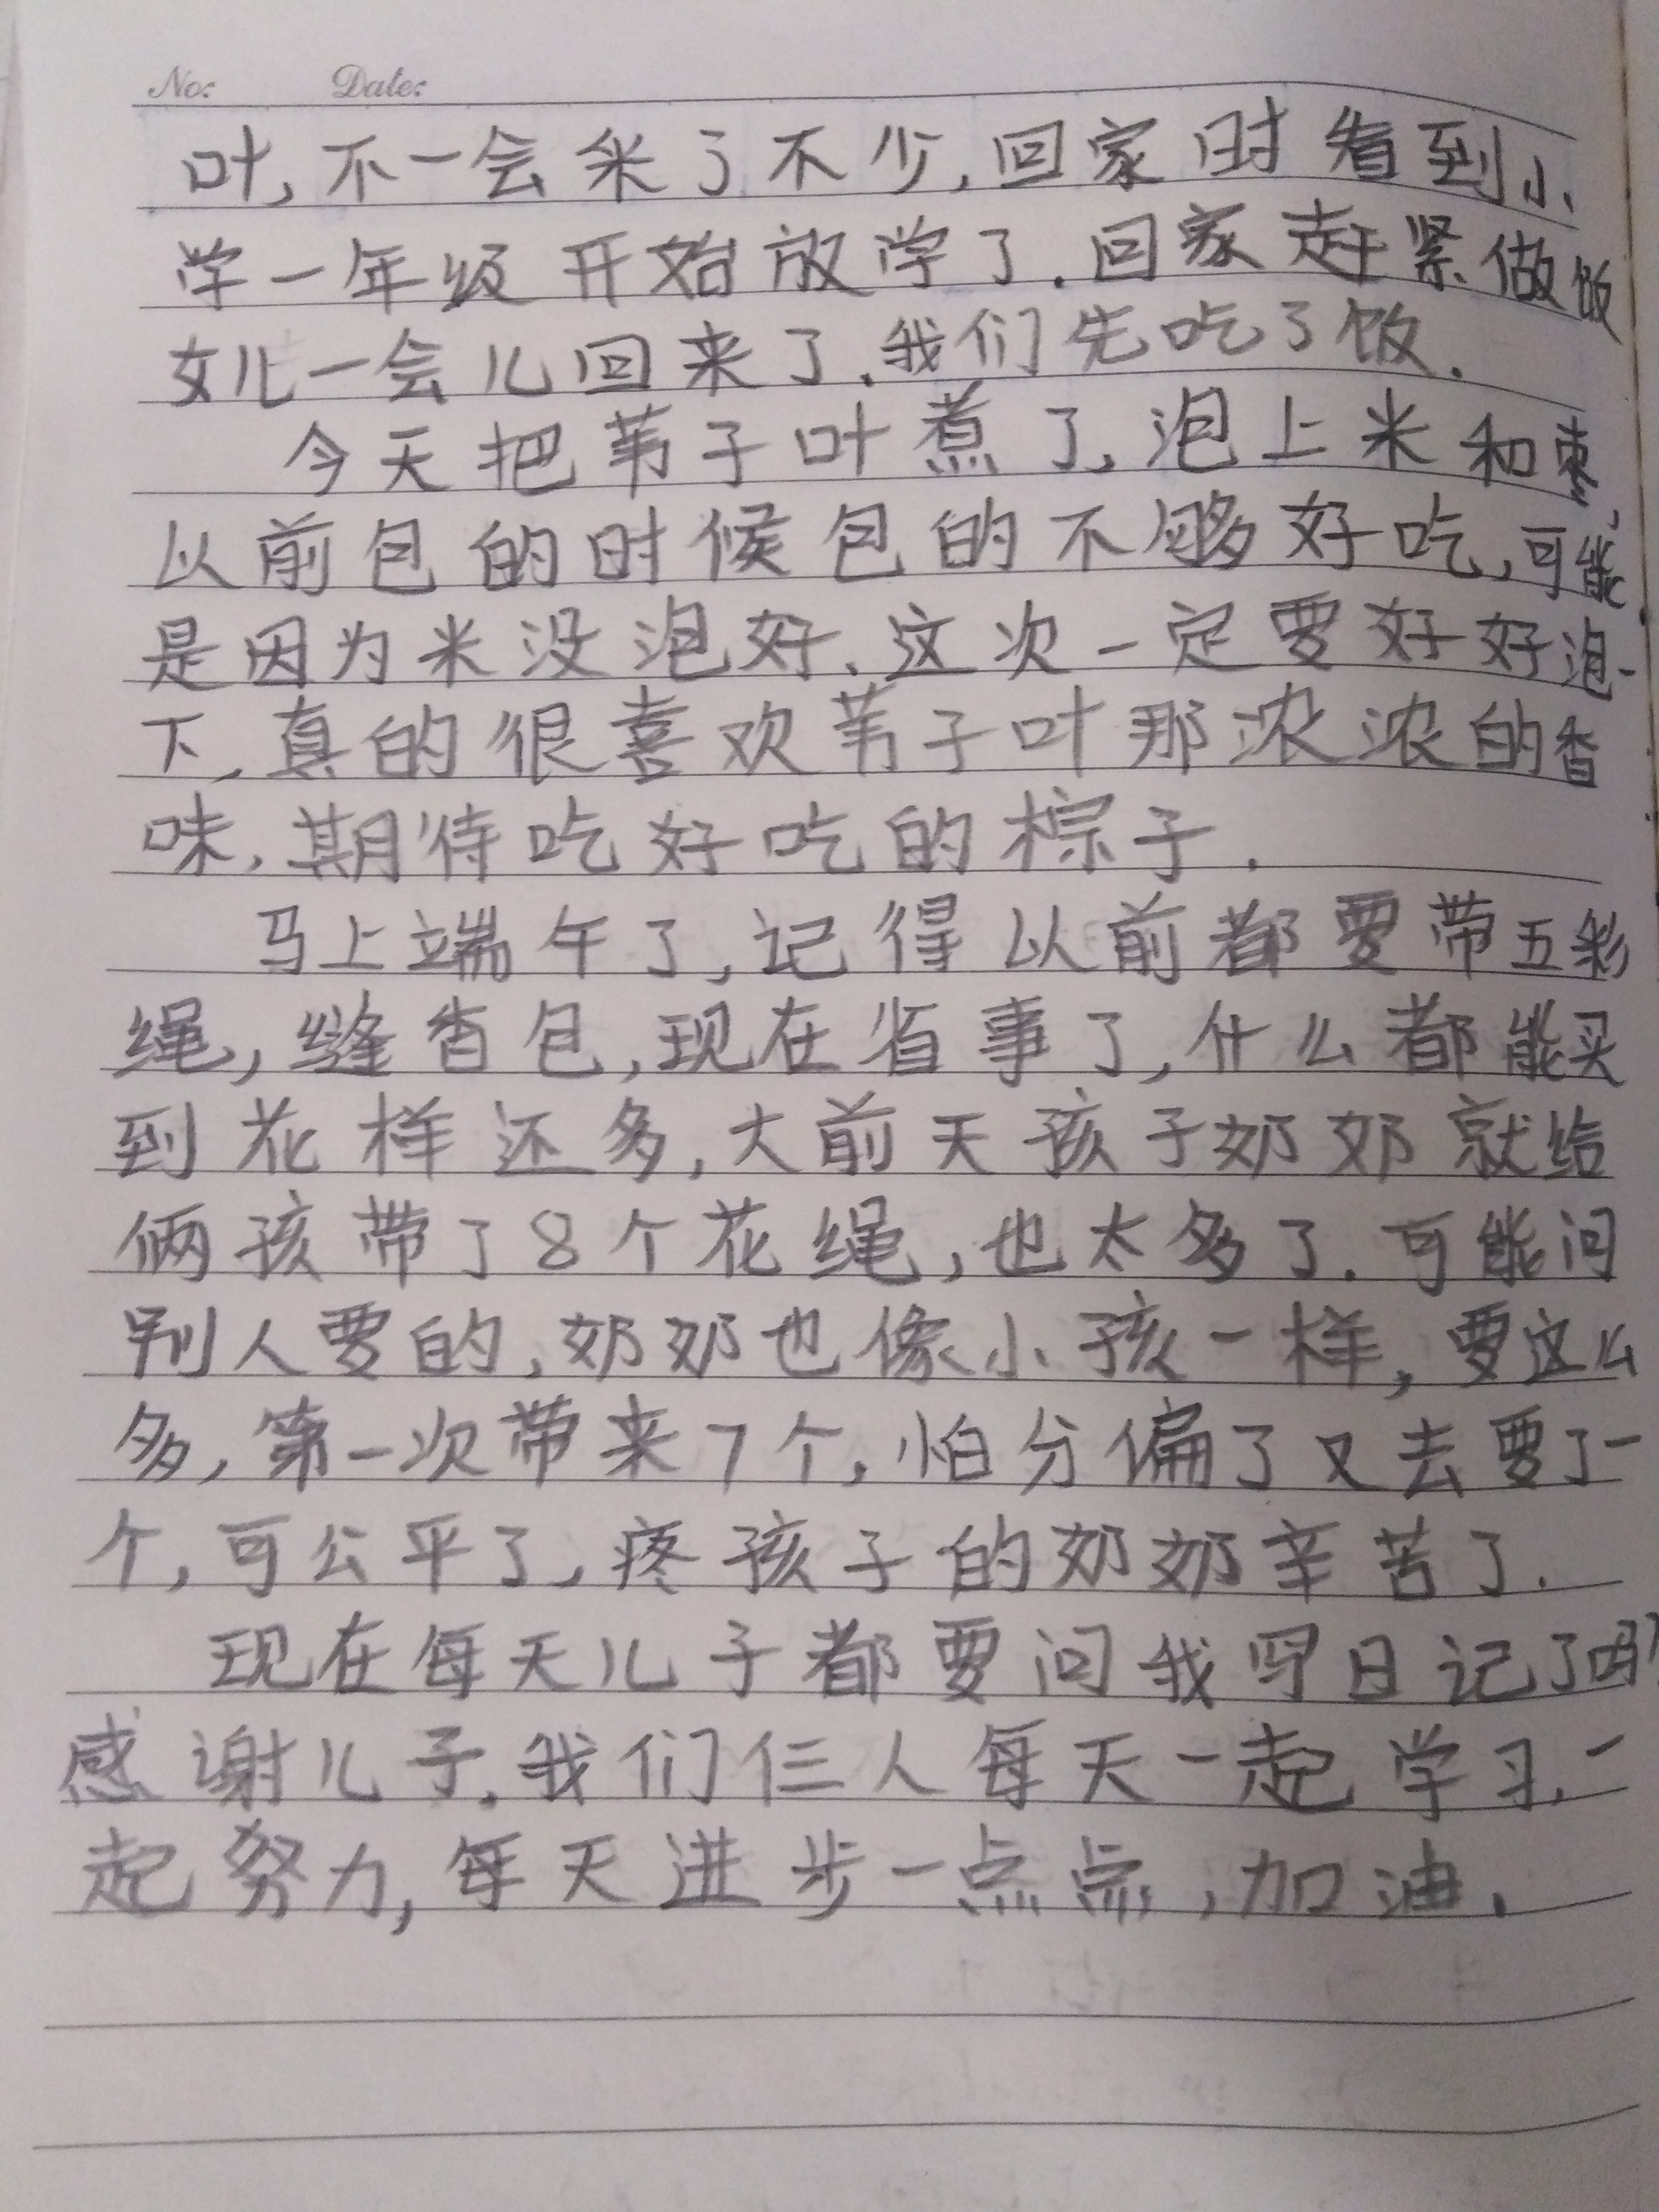 No: Date:
叶,不一会采了不少.回家时看到小
学一年级开始放学了.回家赶紧做饭
女儿一会儿回来了.我们先吃了饭.
今天把苇子叶煮了,泡上米和枣,
以前包的时候包的不够好吃,可能
是因为米没泡好.这次一定要好好泡一
下,真的很喜欢苇子叶那浓浓的香
味,期待吃好吃的棕子.
马上端午了,记得以前都要带五彩
绳,缝香包,现在省事了,什么都能买
到花样还多,大前天孩子奶奶就给
俩孩带了8个花绳,也太多了.可能问
别人要的,奶奶也像小孩一样,要这么
多,第一次带来7个,怕分偏了又去要了一
个,可公平了,疼孩子的奶奶辛苦了.
现在每天儿子都要问我写日记了吗?
感谢儿子.我们仨人每天一起学习.一
起努力,每天进步一点点,加油.